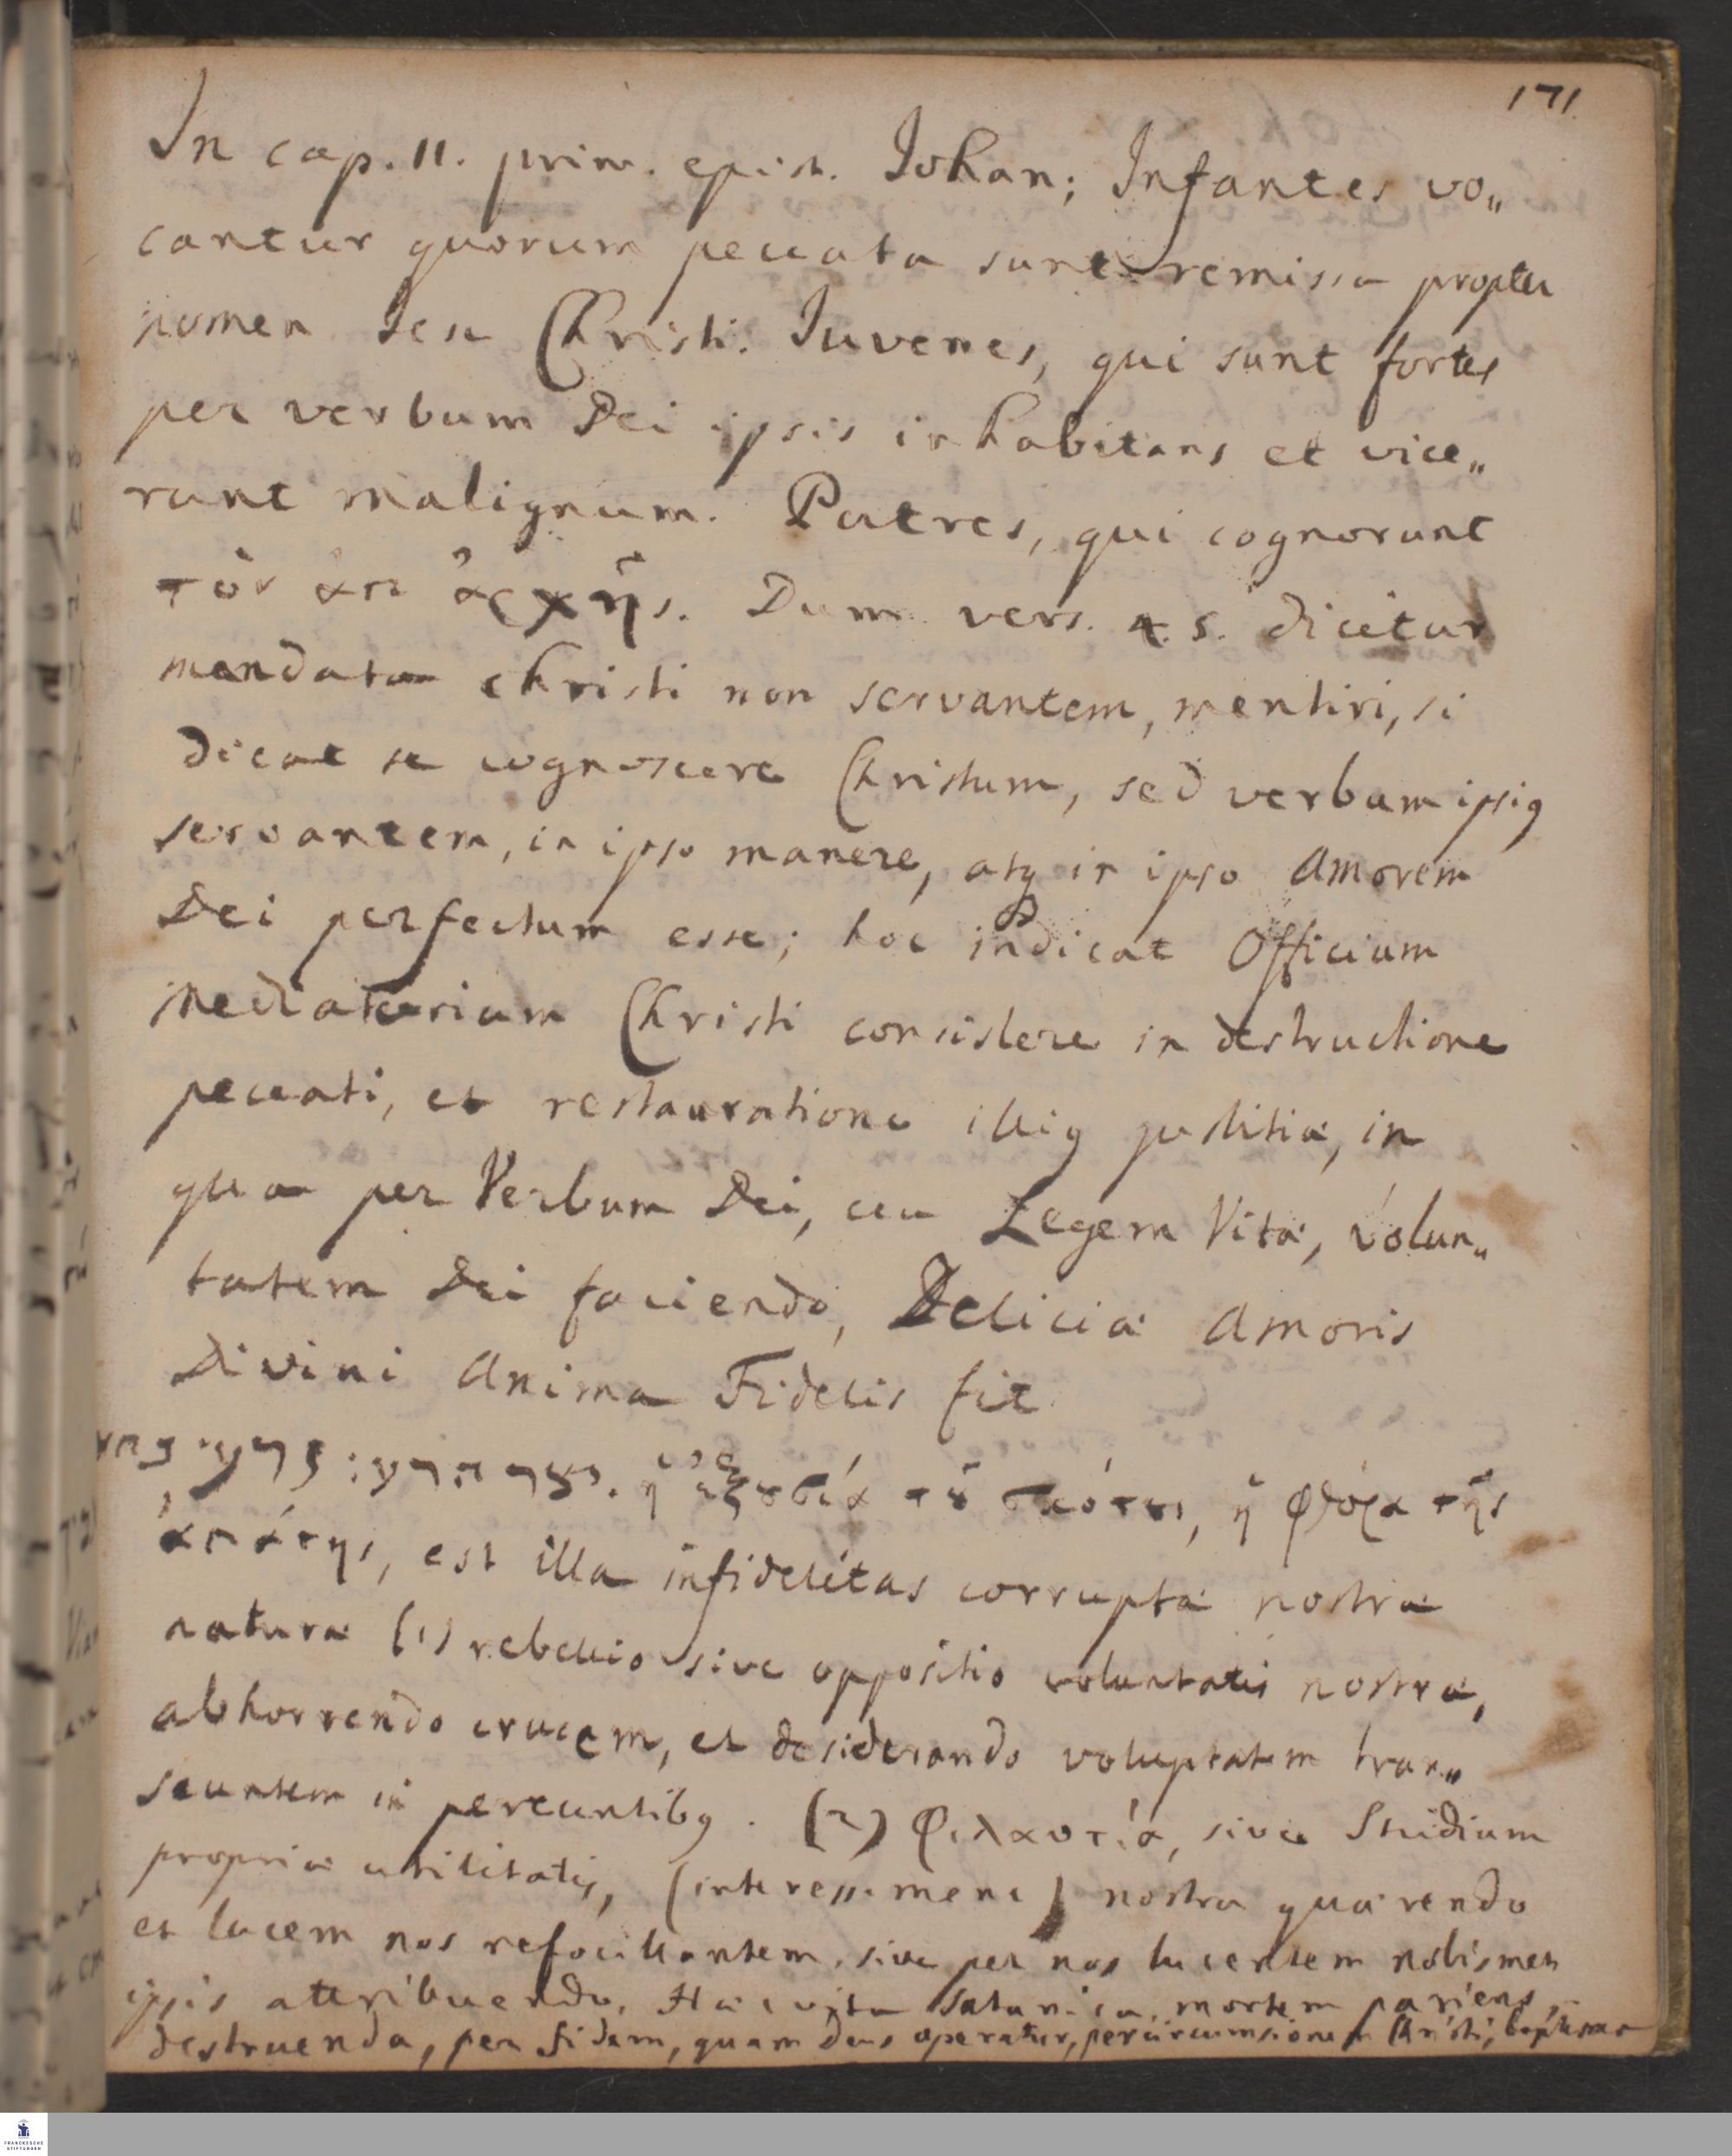 171.
In cap. II. prim. epist. Johan; Infantes vo„
cantur quorum peccata sunt remissa propter
nomen Jesu Christi. Juvenes, qui sunt fortes
per verbum Dei ipsis inhabitans et vice„
runt malignum. Patres, qui cognorunt
τὸν ἀπ ἀρχῆς. Dum vers. 4. 5. dicitur
mandata Christi non servantem, mentiri, si
dicat se cognoscere Christum, sed verbum ipsiꝰ
servantem, in ipso manere, atq in ipso Amorem
Dei perfectum esse; hoc indicat Officium
Mediatorium Christi consistere in destructione
peccati, et restauratione illiꝰ justitiæ, in
qua per Verbum Dei, ceu Legem Vitæ, volun„
tatem Dei faciendo, Deliciæ Amoris
Divini Anima Fidelis fit
יצר הרע: ἡ ἐξουσία τοῦ σκότους, ἡ φθορα τῆς
ἀπάτης, est illa infidelitas corruptæ nostræ
naturæ (1) rebellio sive oppositio voluntatis nostræ,
abhorrendo crucem, et desiderando voluptatem tran„
seuntem in pereuntibꝰ. (2) Φιλαυτία, sive Studium
propriæ utilitatis, (interessement) nostra quærendo
et lucem nos refocillantem, sive per nos lucentem nobismet
ipsis attribuendo. Hæc vita Satanica, mortem pariens,
destruenda, per fidem, quam Deus operatur, per circumsionem Christi, baptismo
FRANCKESCHE
STIFTUNGEN